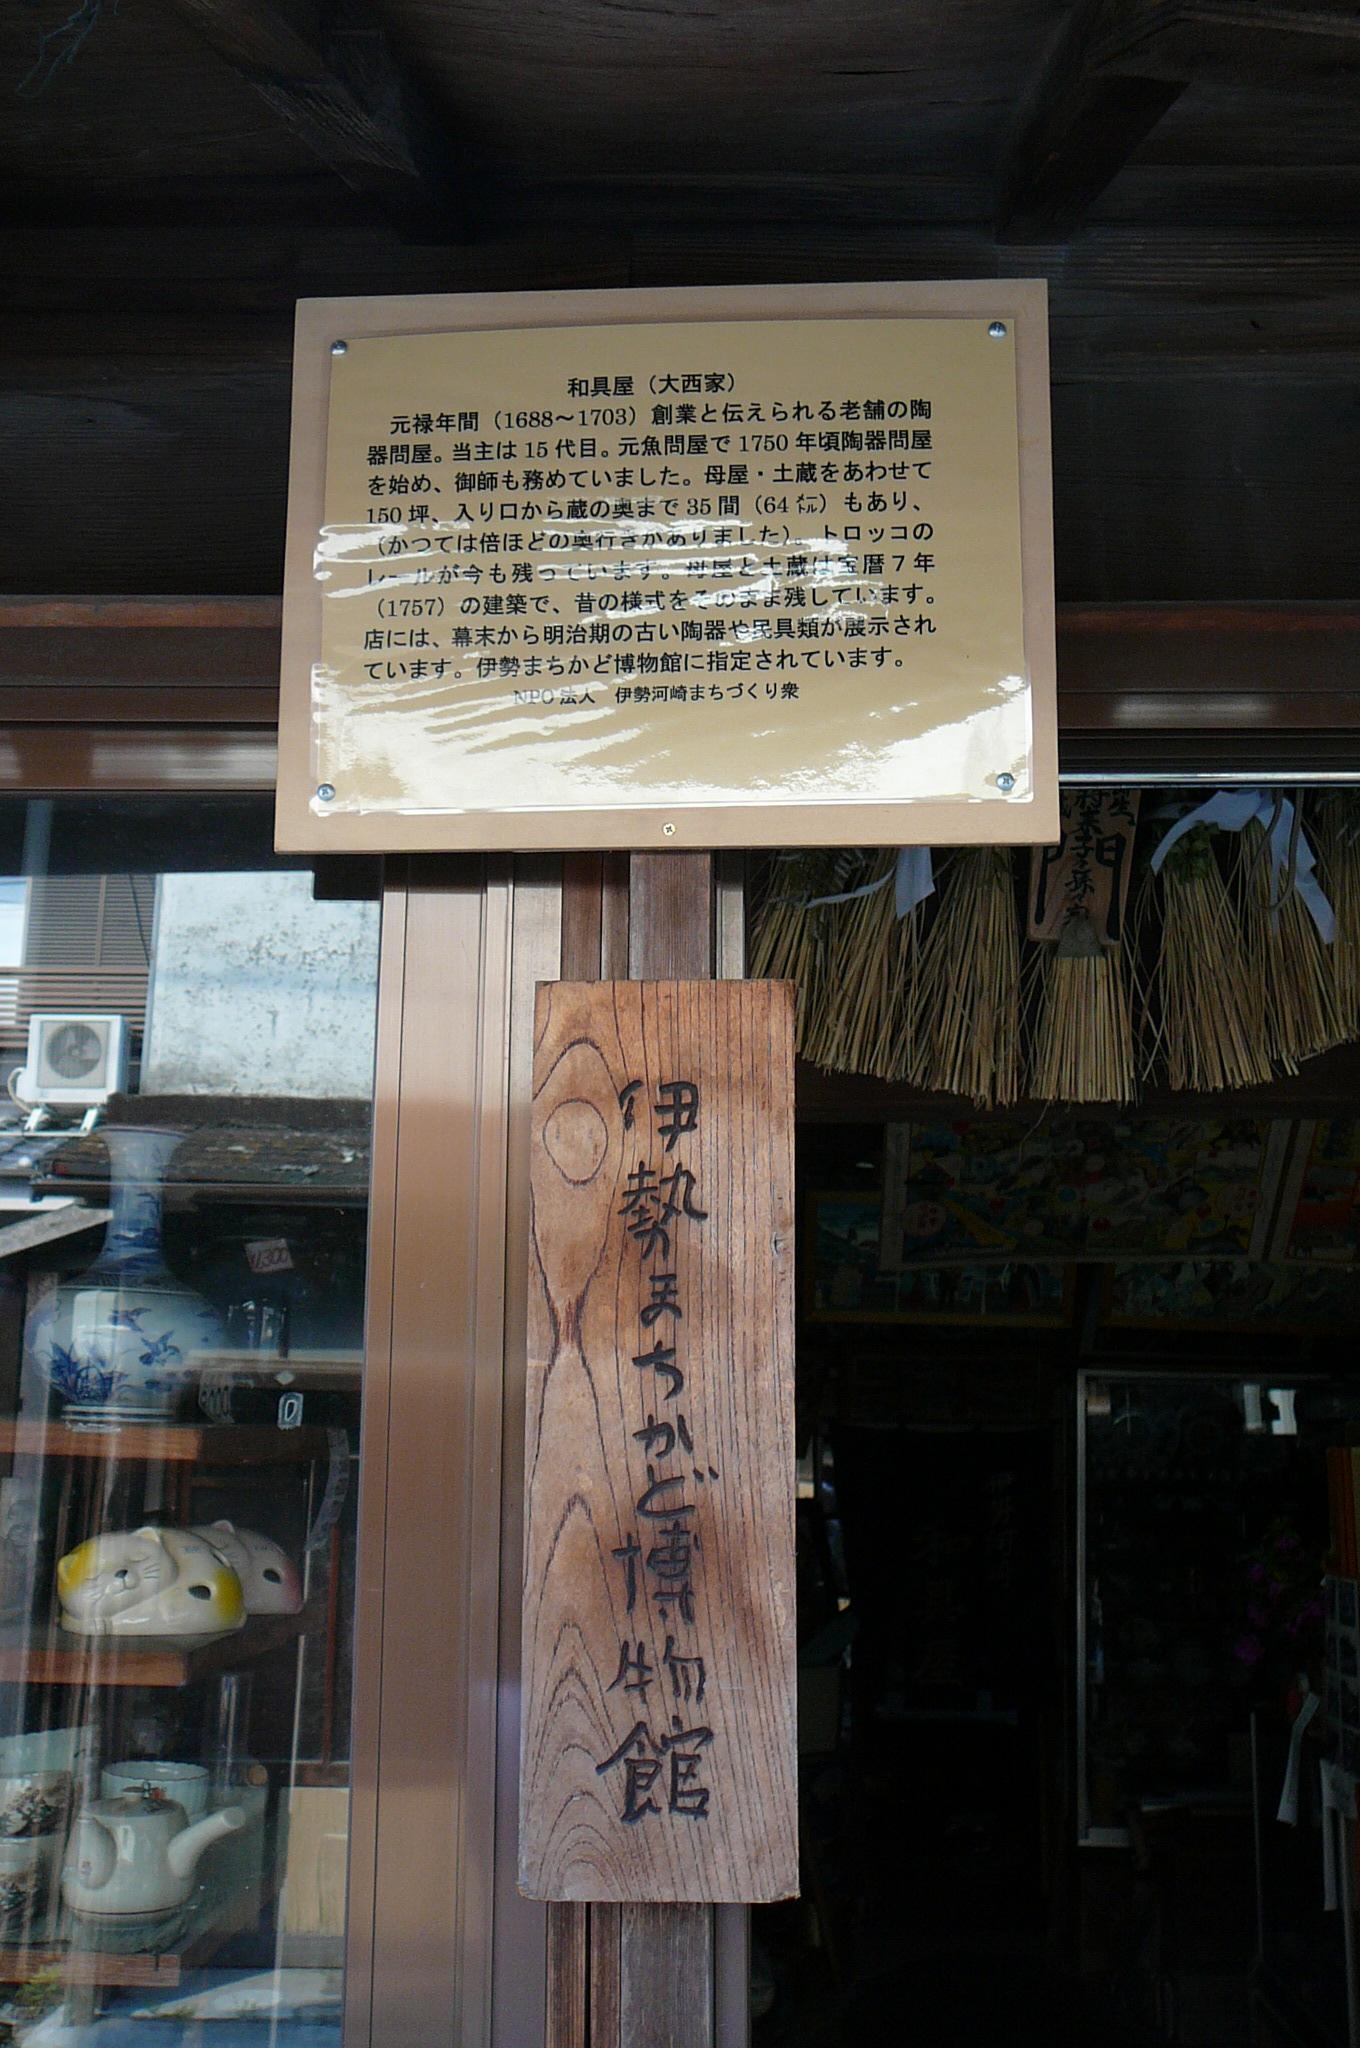 和具屋（大西家）
元禄年間（1688～1703）創業と伝えられる老舗の陶
器問屋。当主は15代目。元魚問屋で1750年頃陶器問屋
を始め、御師も務めていました。母屋・土蔵をあわせて
150坪、入り口から蔵の奥まで35間（64㍍）もあり、
（かつては倍ほどの奥行きがありました）。トロッコの
レールが今も残っています。母屋と土蔵は宝暦７年
（1757）の建築で、昔の様式をそのまま残しています。
店には、幕末から明治期の古い陶器や民具類が展示され
ています。伊勢まちかど博物館に指定されています。
NPO法人　伊勢河崎まちづくり衆
伊勢まちかど博物館
門
和具屋